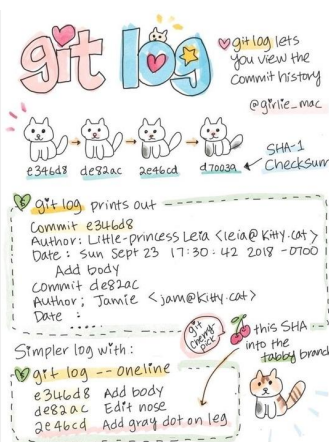 git log
git log lets
you view the
commit history
@girlie_mac
e346d8 de82ac 2e46cd d70039
SHA-1
Checksum
git log prints out
Commit e346d8
Author: Little-princess Leia <leia@kitty.cat>
Date: Sun Sept 23 17:30:42 2018 -0700
Add body
commit de82ac
Author; Jamie <jam@kitty.cat>
Date :
git cherry pick
this SHA
into the
tabby branc
Simpler log with:
git log --oneline
e346d8 Add body
de82ac Edit nose
2e46cd Add gray dot on leg